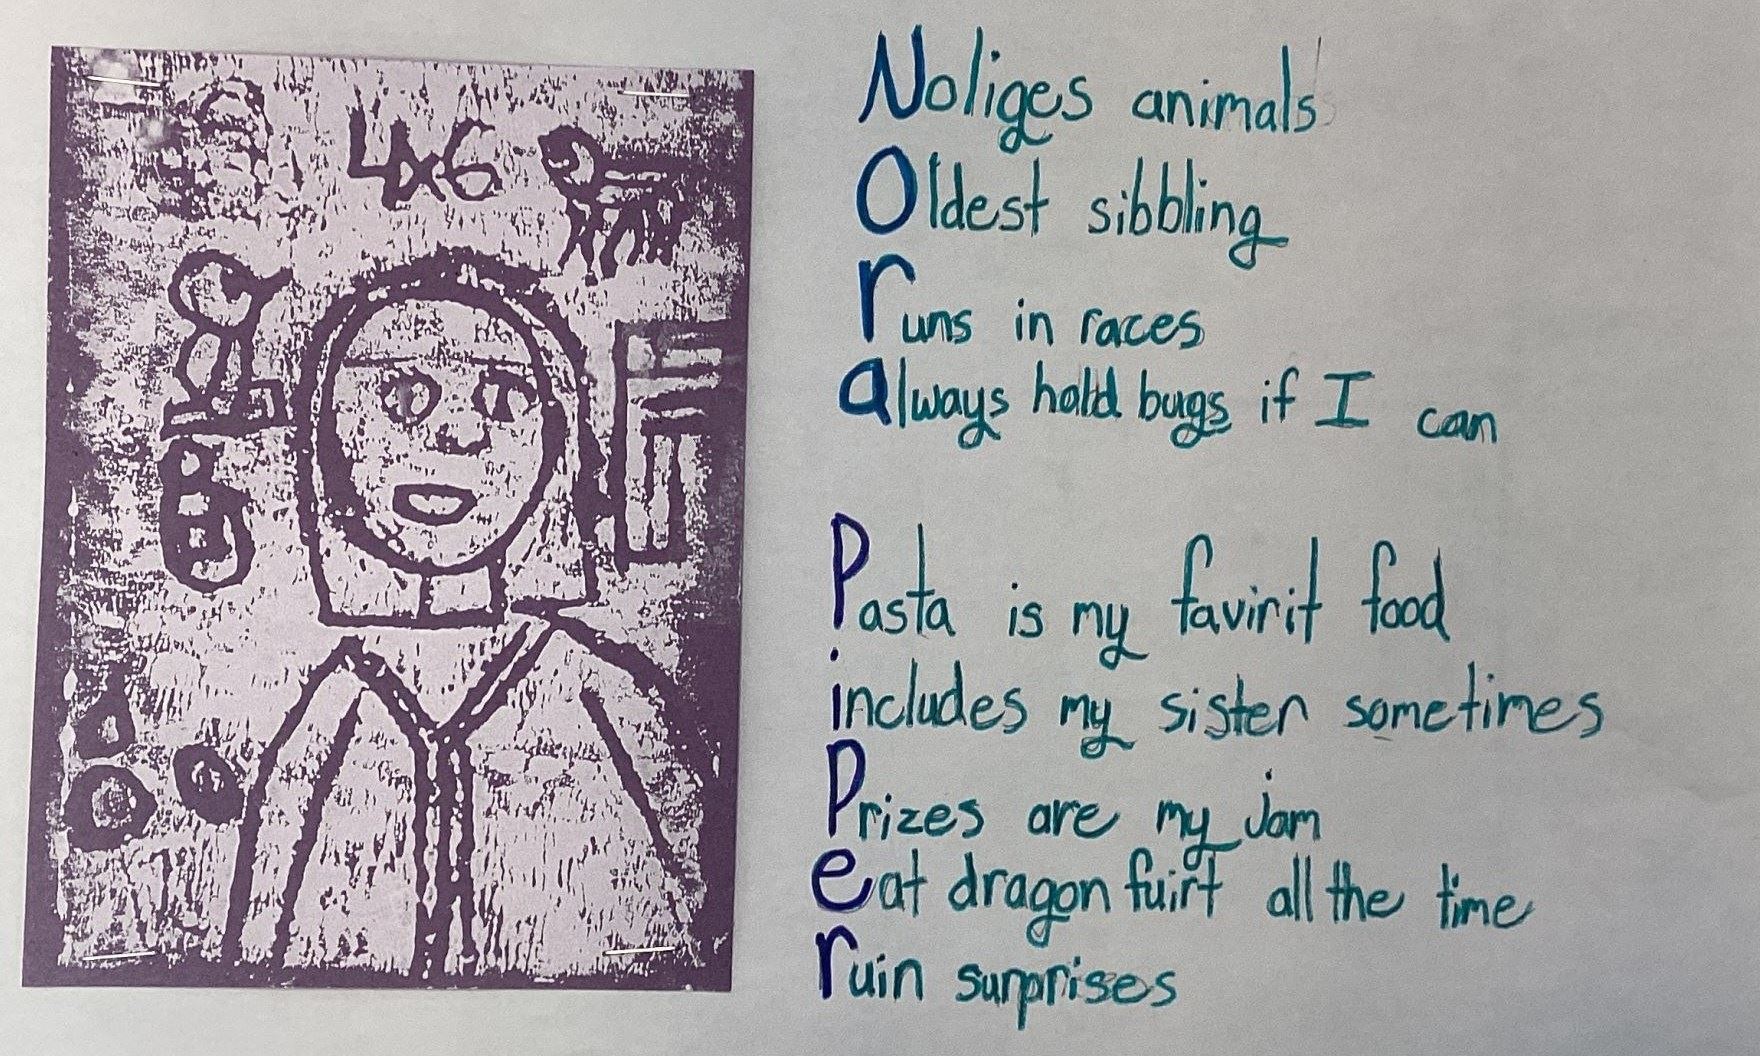 4x6
Noliges animals
Oldest sibbling
runs in races
always hold bugs if I can
Pasta is my favirit food
includes my sister sometimes
Prizes are my jam
eat dragon fuirt all the time
ruin surprises